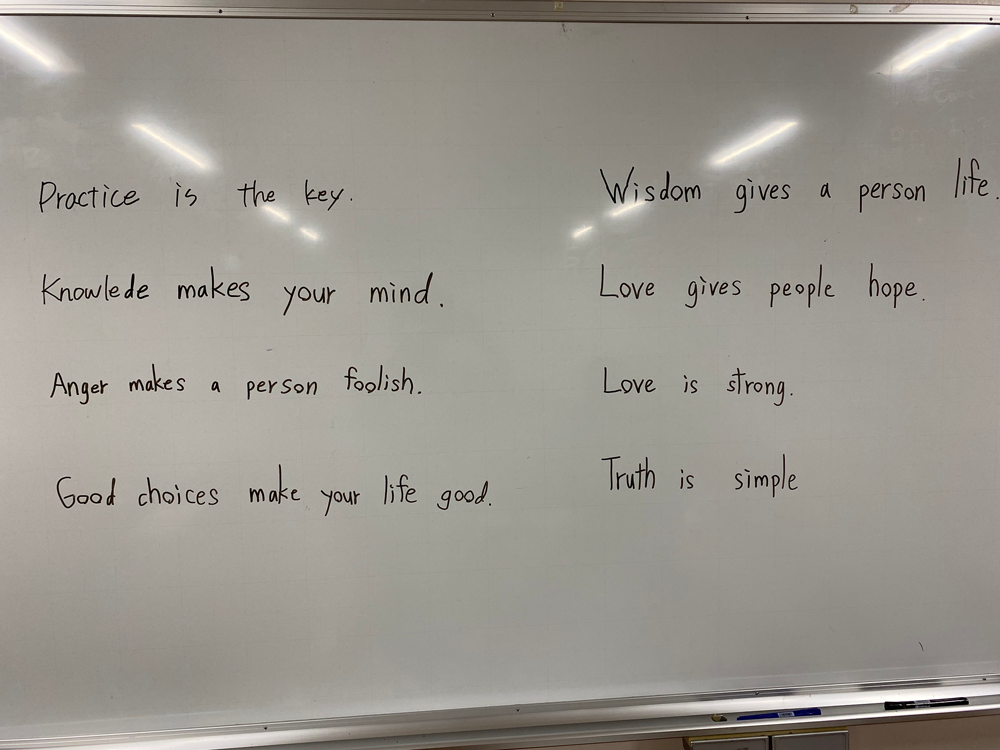 Practice is the key.
Knowlede makes your mind.
Anger makes a person foolish.
Good choices make your life good.
Wisdom gives a person life.
Love gives people hope.
Love is strong.
Truth is simple